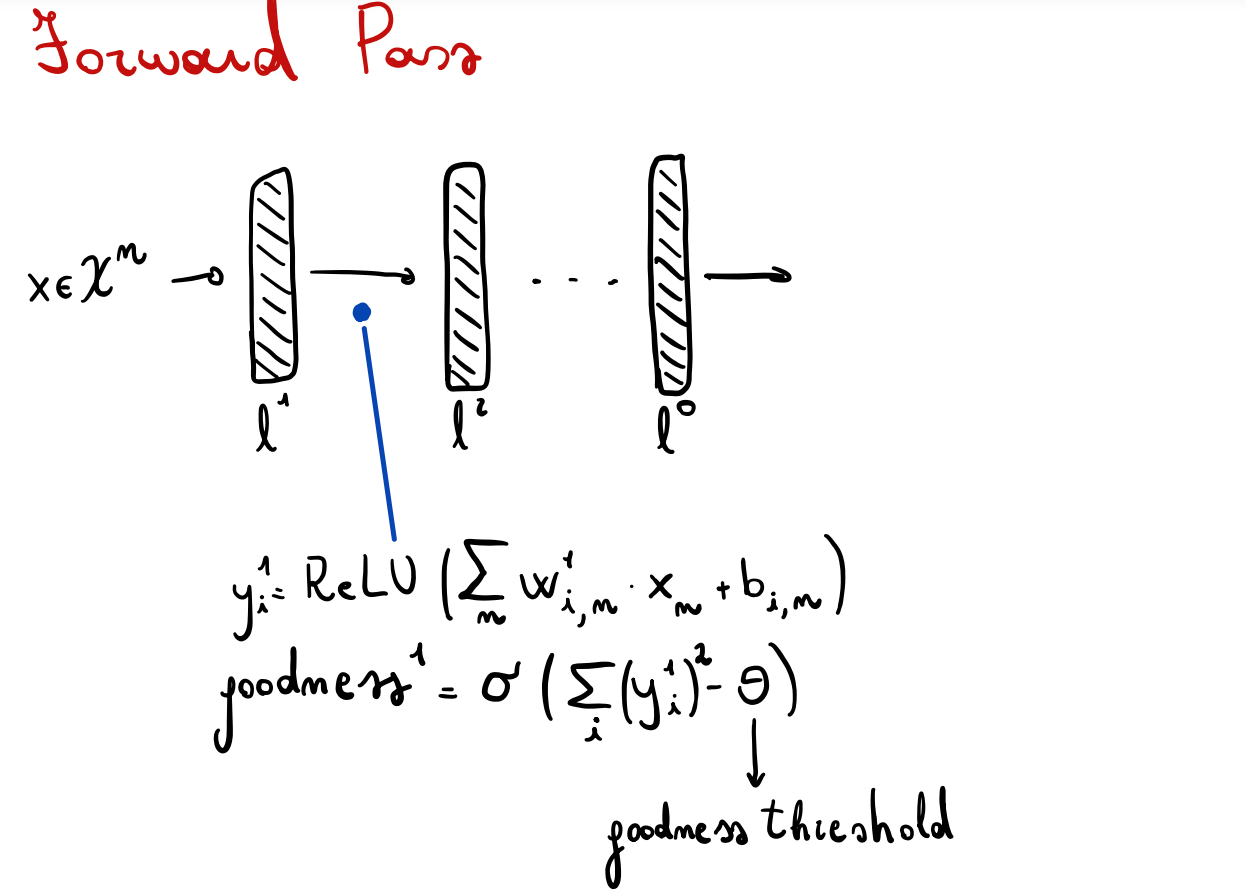 Forward Pass
x ∈ 𝒳ⁿ
l¹ l² l⁰
. . .
yᵢ¹ = ReLU (∑ₙ w¹ᵢ,ₙ · xₙ + bᵢ,ₙ)
goodness¹ = σ (∑ᵢ (yᵢ¹)² - θ)
goodness threshold